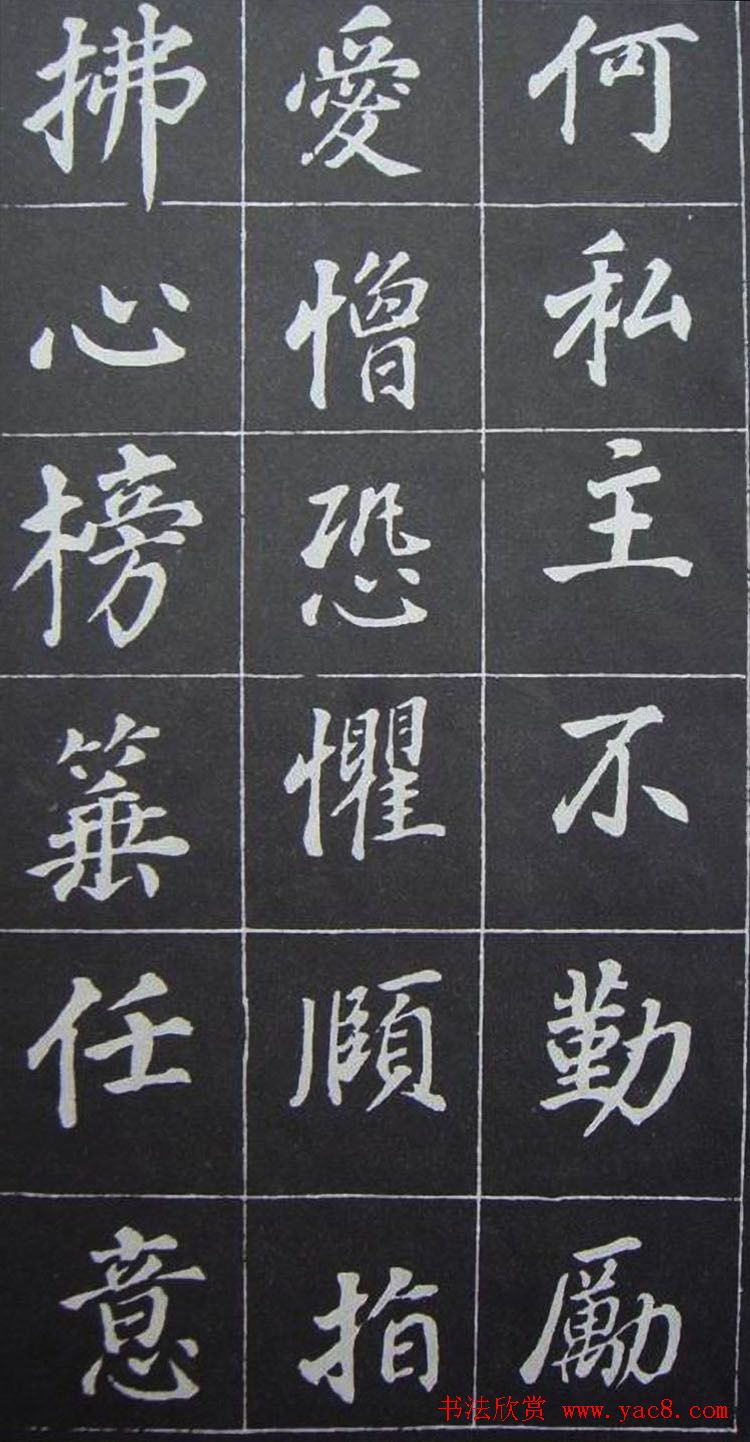 何私主不勤勵
愛憎恐懼頋指
拂心榜箠任意
书法欣赏 www.yac8.com